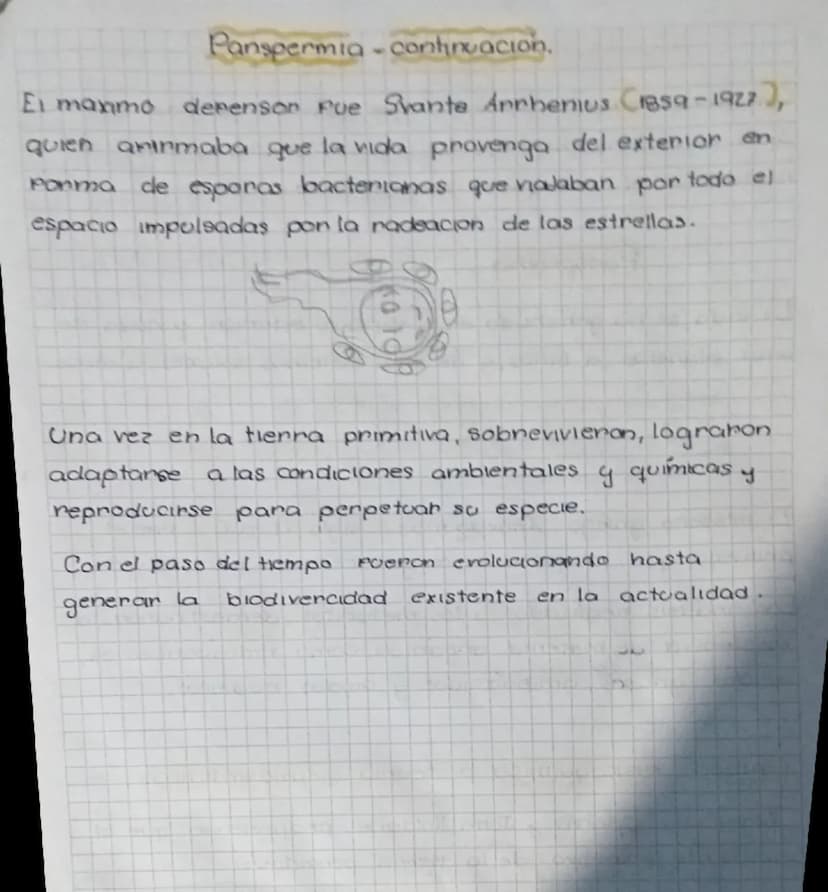 Panspermia - continuacion.
El maximo defensor fue Svante Arrhenius (1859-1927),
quien afirmaba que la vida provenga del exterior en
forma de esporas bacterianas que viajaban por todo el
espacio impulsadas por la radeacion de las estrellas.
Una vez en la tierra primitiva, sobrevivieron, lograron
adaptarse a las condiciones ambientales y químicas y
reproducirse para perpetuar su especie.
Con el paso del tiempo fueron evolucionando hasta
generar la biodivercidad existente en la actualidad.